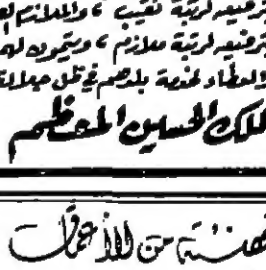 بترفيعه لرتبة نقيب ، والملازم
بترفيعه لرتبة ملازم ، ويتمون له
والعطاء لخدمة بلدهم في ظل جلالة
الملك الحسين المعظم
تهنئة من الأعماق